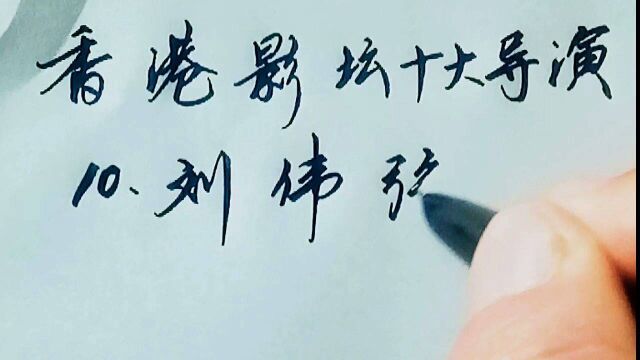 香港影坛十大导演
10、刘伟强